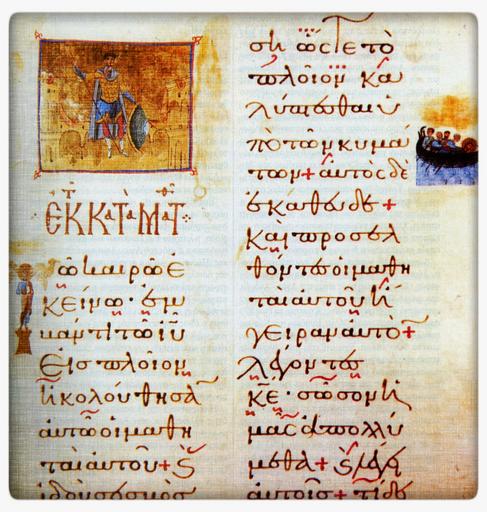 ἐκ τ κατὰ Ματθ
ῶ καιρῶ ἐ
κείνω · ἐμ
βάντι τῶ ἰῦ
εἰς πλοῖον
ἠκολούθησα̅
αὐτῶ οἱ μαθη
ταὶ αὐτοῦ + ϛ
ἰδοὺ σεισμὸς
ση ὥστε τὸ
πλοῖον κα
λύπτεσθαι ὑ
πὸ τῶν κυμά
των + αὐτὸς δὲ
ἐκάθευδε +
καὶ προσελ
θόντες οἱ μαθη
ταὶ αὐτοῦ ἤ
γειραν αὐτὸ +
λέγοντες
κ̅ε̅ · σῶσον ἡ
μᾶς ἀπολλύ
μεθα + ϛ λέγει
αὐτοῖς + τί δει